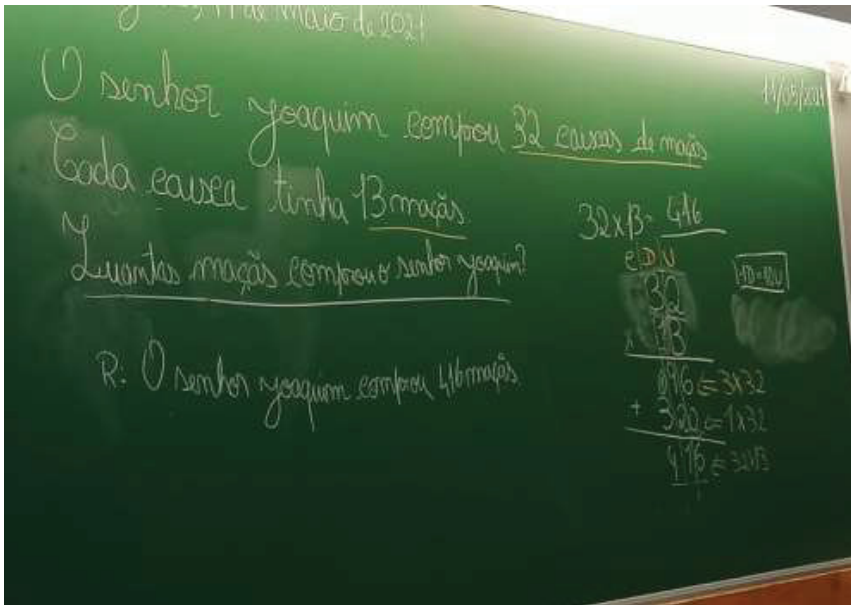 maio de 2021
11/05/2021
O senhor Joaquim compou 32 caixas de maçãs
Coda caixa tinha 13 maçãs
Quantas maçãs comprou o senhor Joaquim?
R: O senhor Joaquim comprou 416 maçãs
32 x 13 = 416
C D U
1D=10U
32
x 13
096 ⇐ 3x32
+ 320 ⇐ 1x32
416 ⇐ 32x13